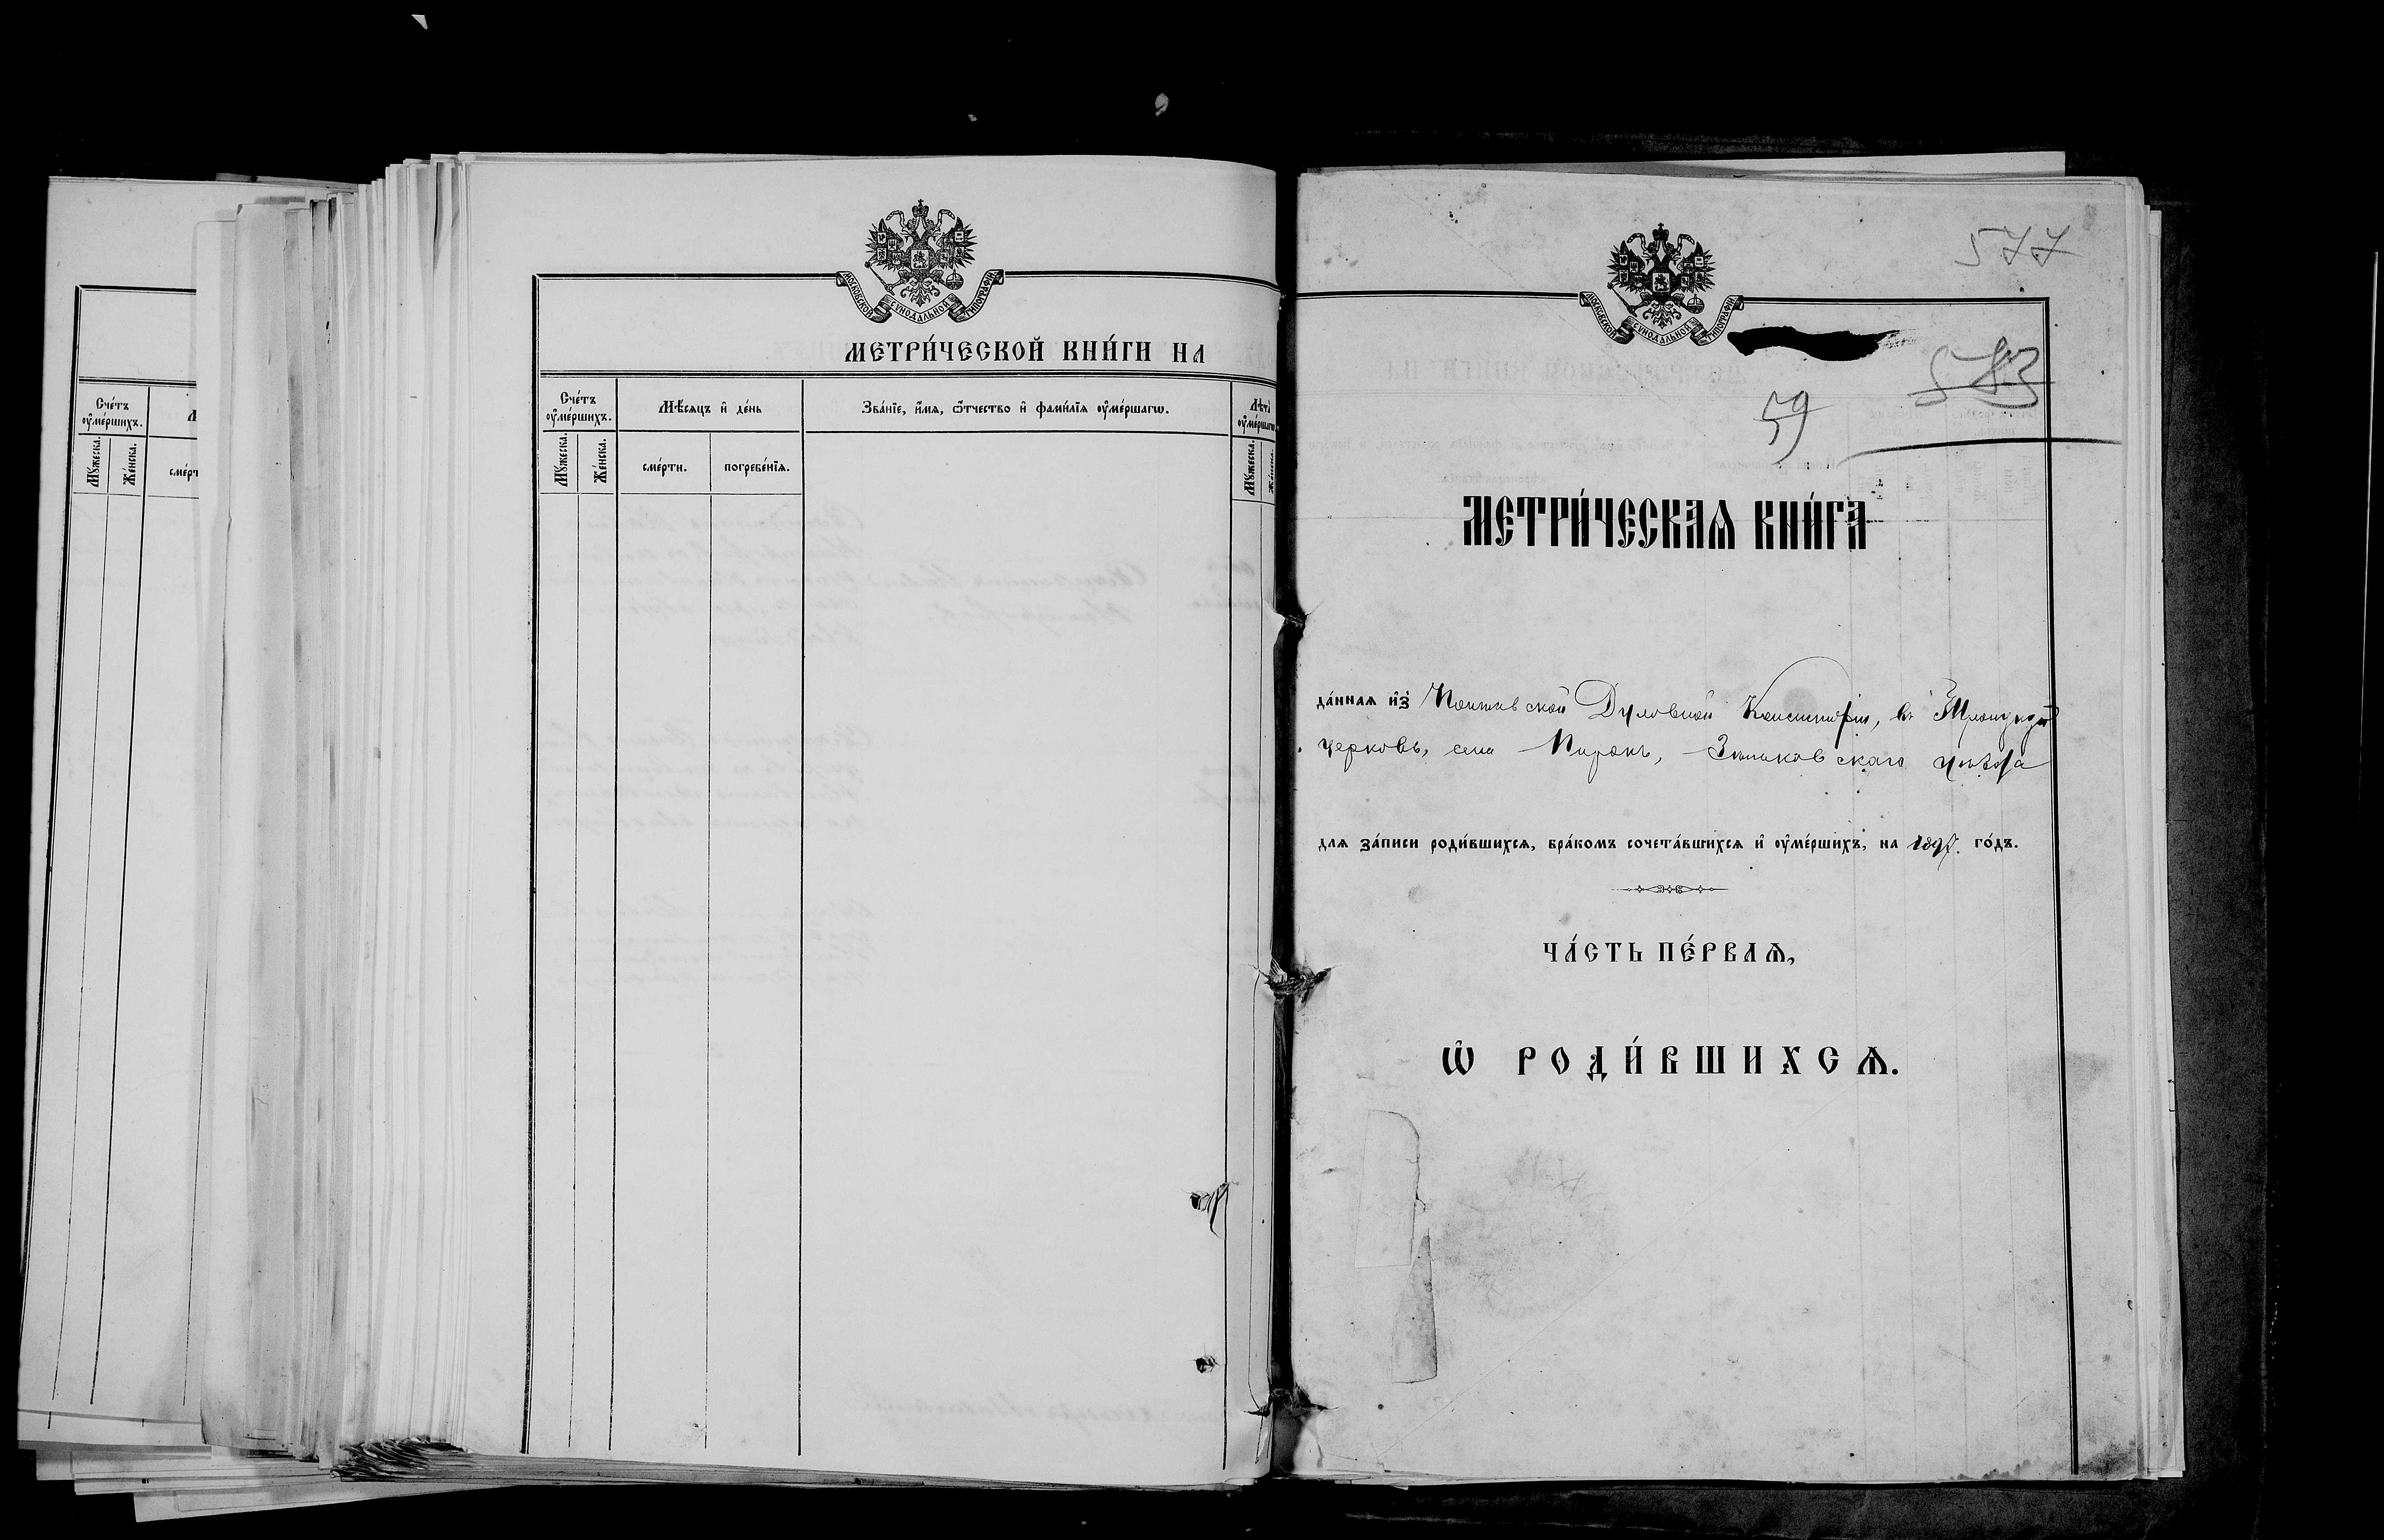 Счéтъ
ᲂу҆мéршихъ.
Мꙋжеска.
Жéнска.
МОСКОВСКОЙ СѴНОДАЛЬНОЙ ТИПОГРАФІИ
МЕТРИ́ЧЕСКОЙ КНИ́ГИ НА
Счéтъ
ᲂу҆мéршихъ.
Мѣ́сяцъ и҆ дéнь
Звáнїе, и҆́мѧ, ѻ҆́тчество и҆ фами́лїѧ ᲂу҆мéршагѡ.
Лѣ́та
ᲂу҆мéршагѡ
Мꙋжеска.
Жéнска.
смéрти.
погребéнїѧ.
Мꙋжеска.
577
МОСКОВСКОЙ СѴНОДАЛЬНОЙ ТИПОГРАФІИ
583
59
МЕТРИ́ЧЕСКАѦ КНИ́ГА
дáннаѧ и҆з̾ Полтавской Духовной Консисторіи, въ Троицкую
церковь, села Пирокъ, Зѣньковскаго уѣзда
длѧ зáписи роди́вшихсѧ, брáкомъ сочетáвшихсѧ и҆ ᲂу҆мéршихъ, на 1897. гóдъ.
ЧА́СТЬ ПЕ́РВАѦ,
Ѽ РОДИ́ВШИХСѦ.